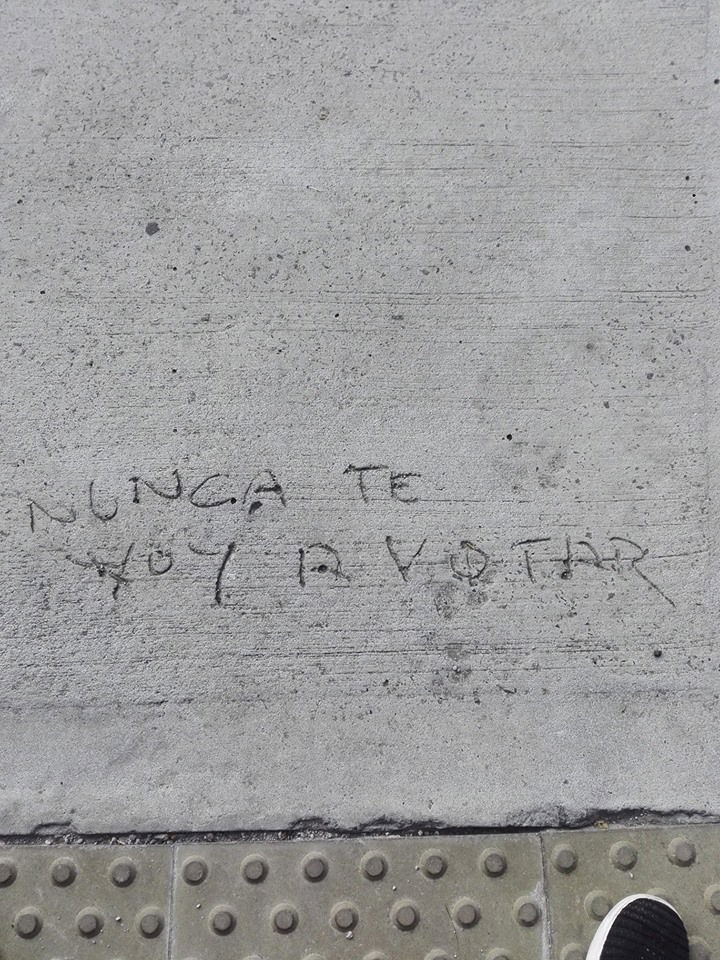 NUNCA TE
VOY A VOTAR